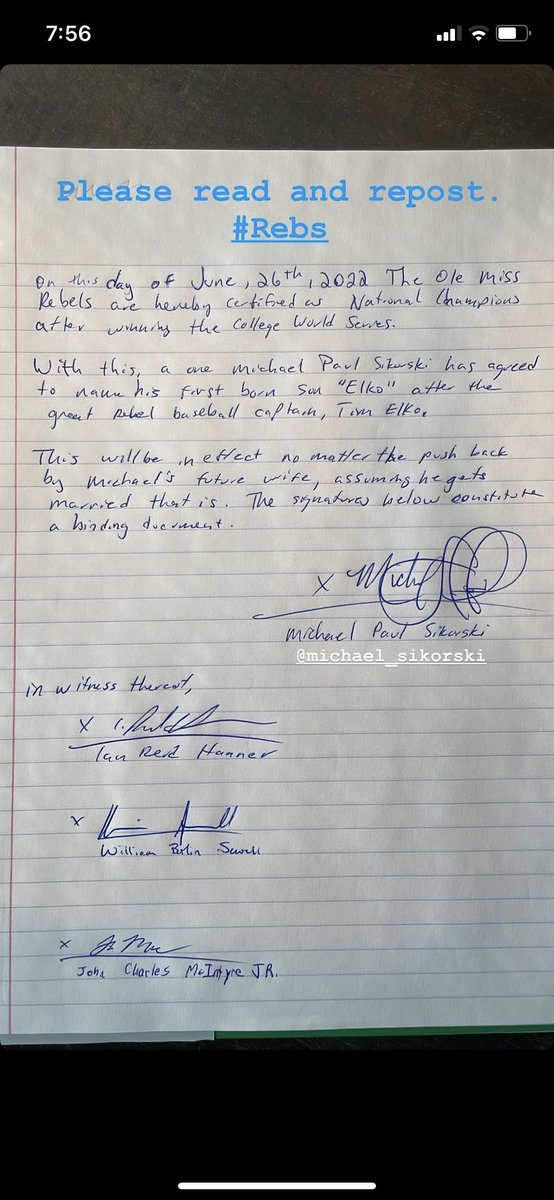 7:56
Please read and repost.
#Rebs
On this day of June, 26th, 2022 The Ole Miss
Rebels are hereby certified as National Champions
after winning the College World Series.
With this, a one Michael Paul Sikorski has agreed
to name his first born son "Elko" after the
great Rebel baseball captain, Tim Elko.
This will be in effect no matter the push back
by Michael's future wife, assuming he gets
married that is. The signatures below constitute
a binding document.
x
Michael Paul Sikorski
@michael_sikorski
in witness thereof,
x
Ian Reid Hanner
x
William
x
John Charles McIntyre JR.